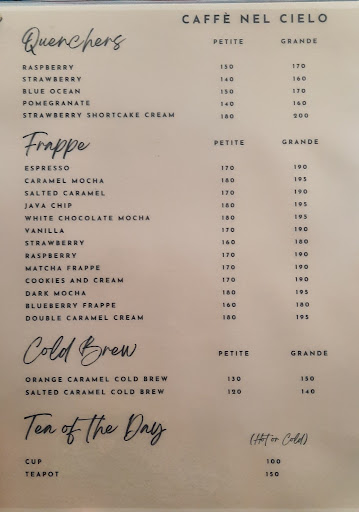 CAFFÈ NEL CIELO
Quenchers PETITE GRANDE
RASPBERRY 150 170
STRAWBERRY 140 160
BLUE OCEAN 150 170
POMEGRANATE 140 160
STRAWBERRY SHORTCAKE CREAM 180 200
Frappe PETITE GRANDE
ESPRESSO 170 190
CARAMEL MOCHA 180 195
SALTED CARAMEL 170 190
JAVA CHIP 180 195
WHITE CHOCOLATE MOCHA 180 195
VANILLA 170 190
STRAWBERRY 160 180
RASPBERRY 170 190
MATCHA FRAPPE 170 190
COOKIES AND CREAM 170 190
DARK MOCHA 180 195
BLUEBERRY FRAPPE 160 180
DOUBLE CARAMEL CREAM 180 195
Cold Brew PETITE GRANDE
ORANGE CARAMEL COLD BREW 130 150
SALTED CARAMEL COLD BREW 120 140
Tea of the Day (Hot or Cold)
CUP 100
TEAPOT 150